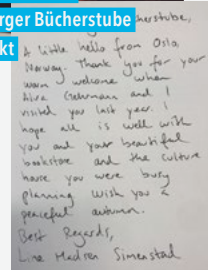 rger Bücherstube
kt
cherstube,
A little hello from Oslo,
Norway. Thank you for your
warm welcome when
Alva Gehrmann and I
visited you last year. I
hope all is well with
you and your beautiful
bookstore and the culture
house you were busy
planning. Wish you a
peaceful autumn.
Best Regards,
Line Madsen Simenstad